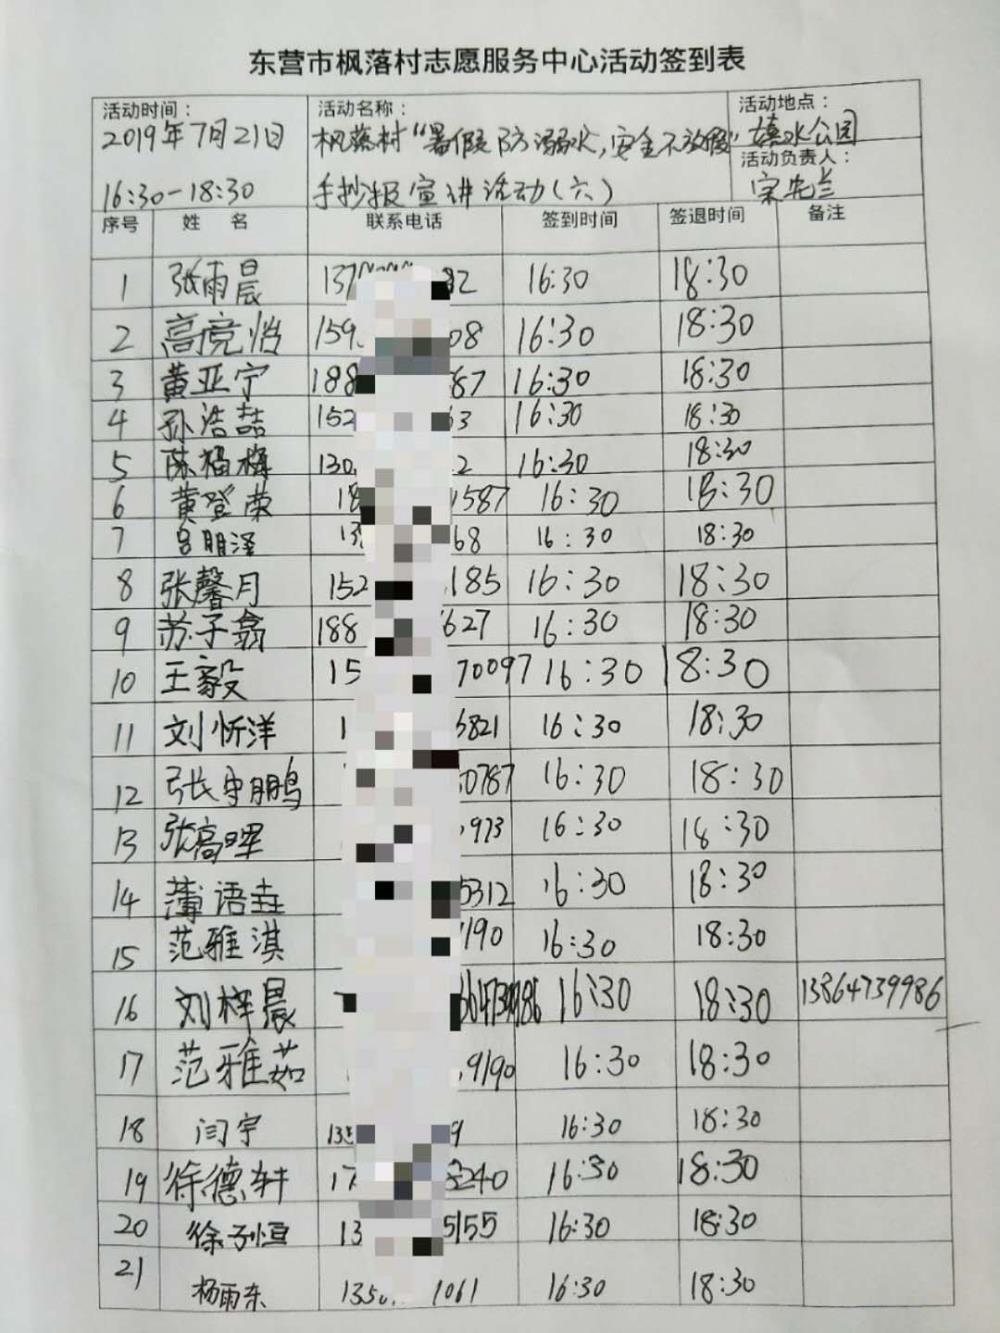 东营市枫落村志愿服务中心活动签到表
活动时间：
2019年7月21日
16:30-18:30
活动名称：
枫落村“暑假防溺水,安全不放假”
手抄报宣讲活动(六)
活动地点：
嬉水公园
活动负责人：
宋先兰
序号 姓 名 联系电话 签到时间 签退时间 备注
1 张雨晨 137 32 16:30 18:30
2 高竞怡 159 08 16:30 18:30
3 黄亚宁 188 87 16:30 18:30
4 孙浩喆 152 63 16:30 18:30
5 陈福梅 130 2 16:30 18:30
6 黄登荣 18 1587 16:30 18:30
7 吕明泽 13 68 16:30 18:30
8 张馨月 152 185 16:30 18:30
9 苏子翕 188 627 16:30 18:30
10 王毅 15 70097 16:30 18:30
11 刘忻洋 1 6821 16:30 18:30
12 张宇鹏 0787 16:30 18:30
13 张高晖 973 16:30 18:30
14 薄语垚 5312 16:30 18:30
15 范雅淇 190 16:30 18:30
16 刘梓晨 16:30 18:30 13864739986
17 范雅茹 9190 16:30 18:30
18 闫宇 135 9 16:30 18:30
19 徐德轩 17 240 16:30 18:30
20 徐子恒 13 5155 16:30 18:30
21 杨雨东 1350 1061 16:30 18:30